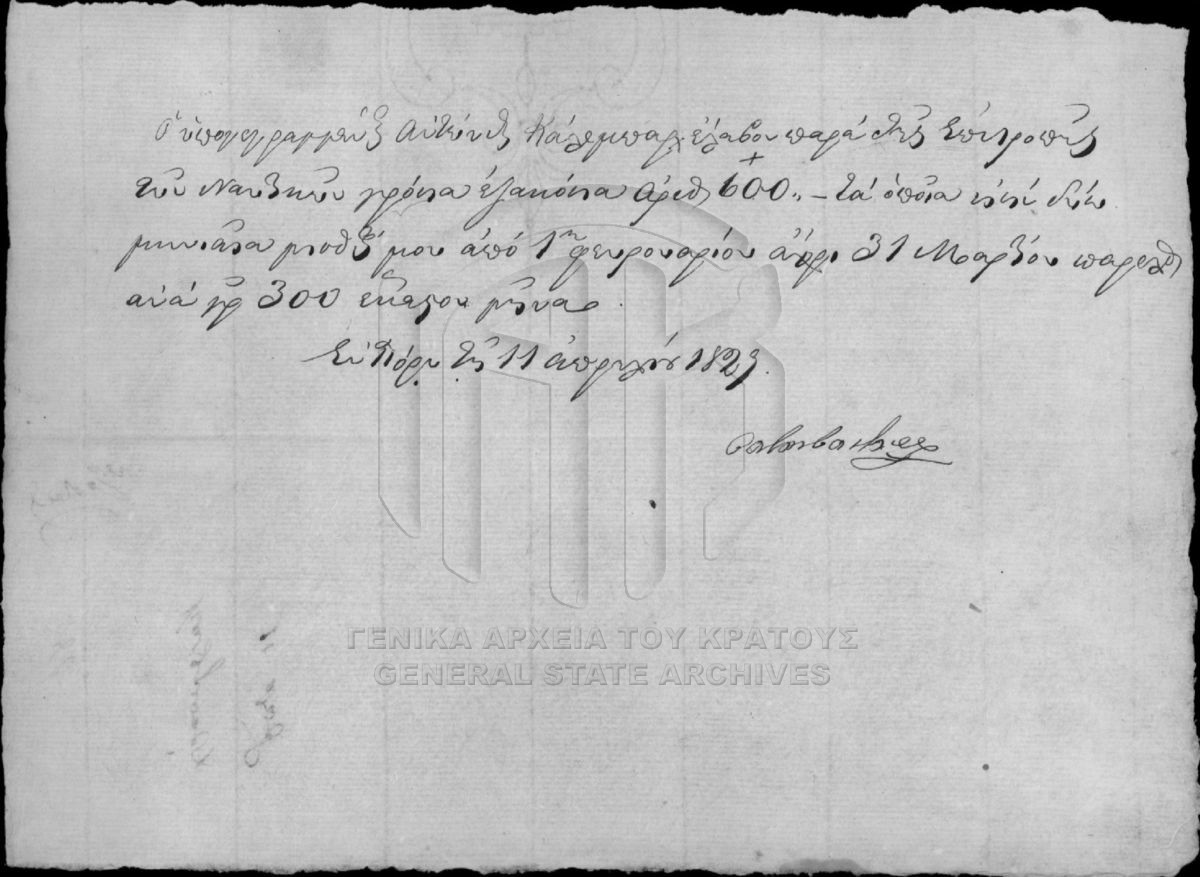 Ὁ ὑπογεγραμμένος Ἀντώνιος Κάλεμπαχ ἔλαβον παρὰ τῆς Ἐπιτροπῆς
τῶν Ναυτικῶν γρόσια ἑξακόσια ἀριθ 600,, – τὰ ὁποῖα εἰσὶ διὰ
μηνιαῖα μισθόν μου ἀπό 1ην φευρουαρίου ἄχρι 31 Μαρτίου παρελθ
ἀνά γρ 300 ἕκαστον μῆνα
Ἐν Πόρῳ τῇ 11 ἀπριλίου 1829.
ΓΕΝΙΚΑ ΑΡΧΕΙΑ ΤΟΥ ΚΡΑΤΟΥΣ
GENERAL STATE ARCHIVES